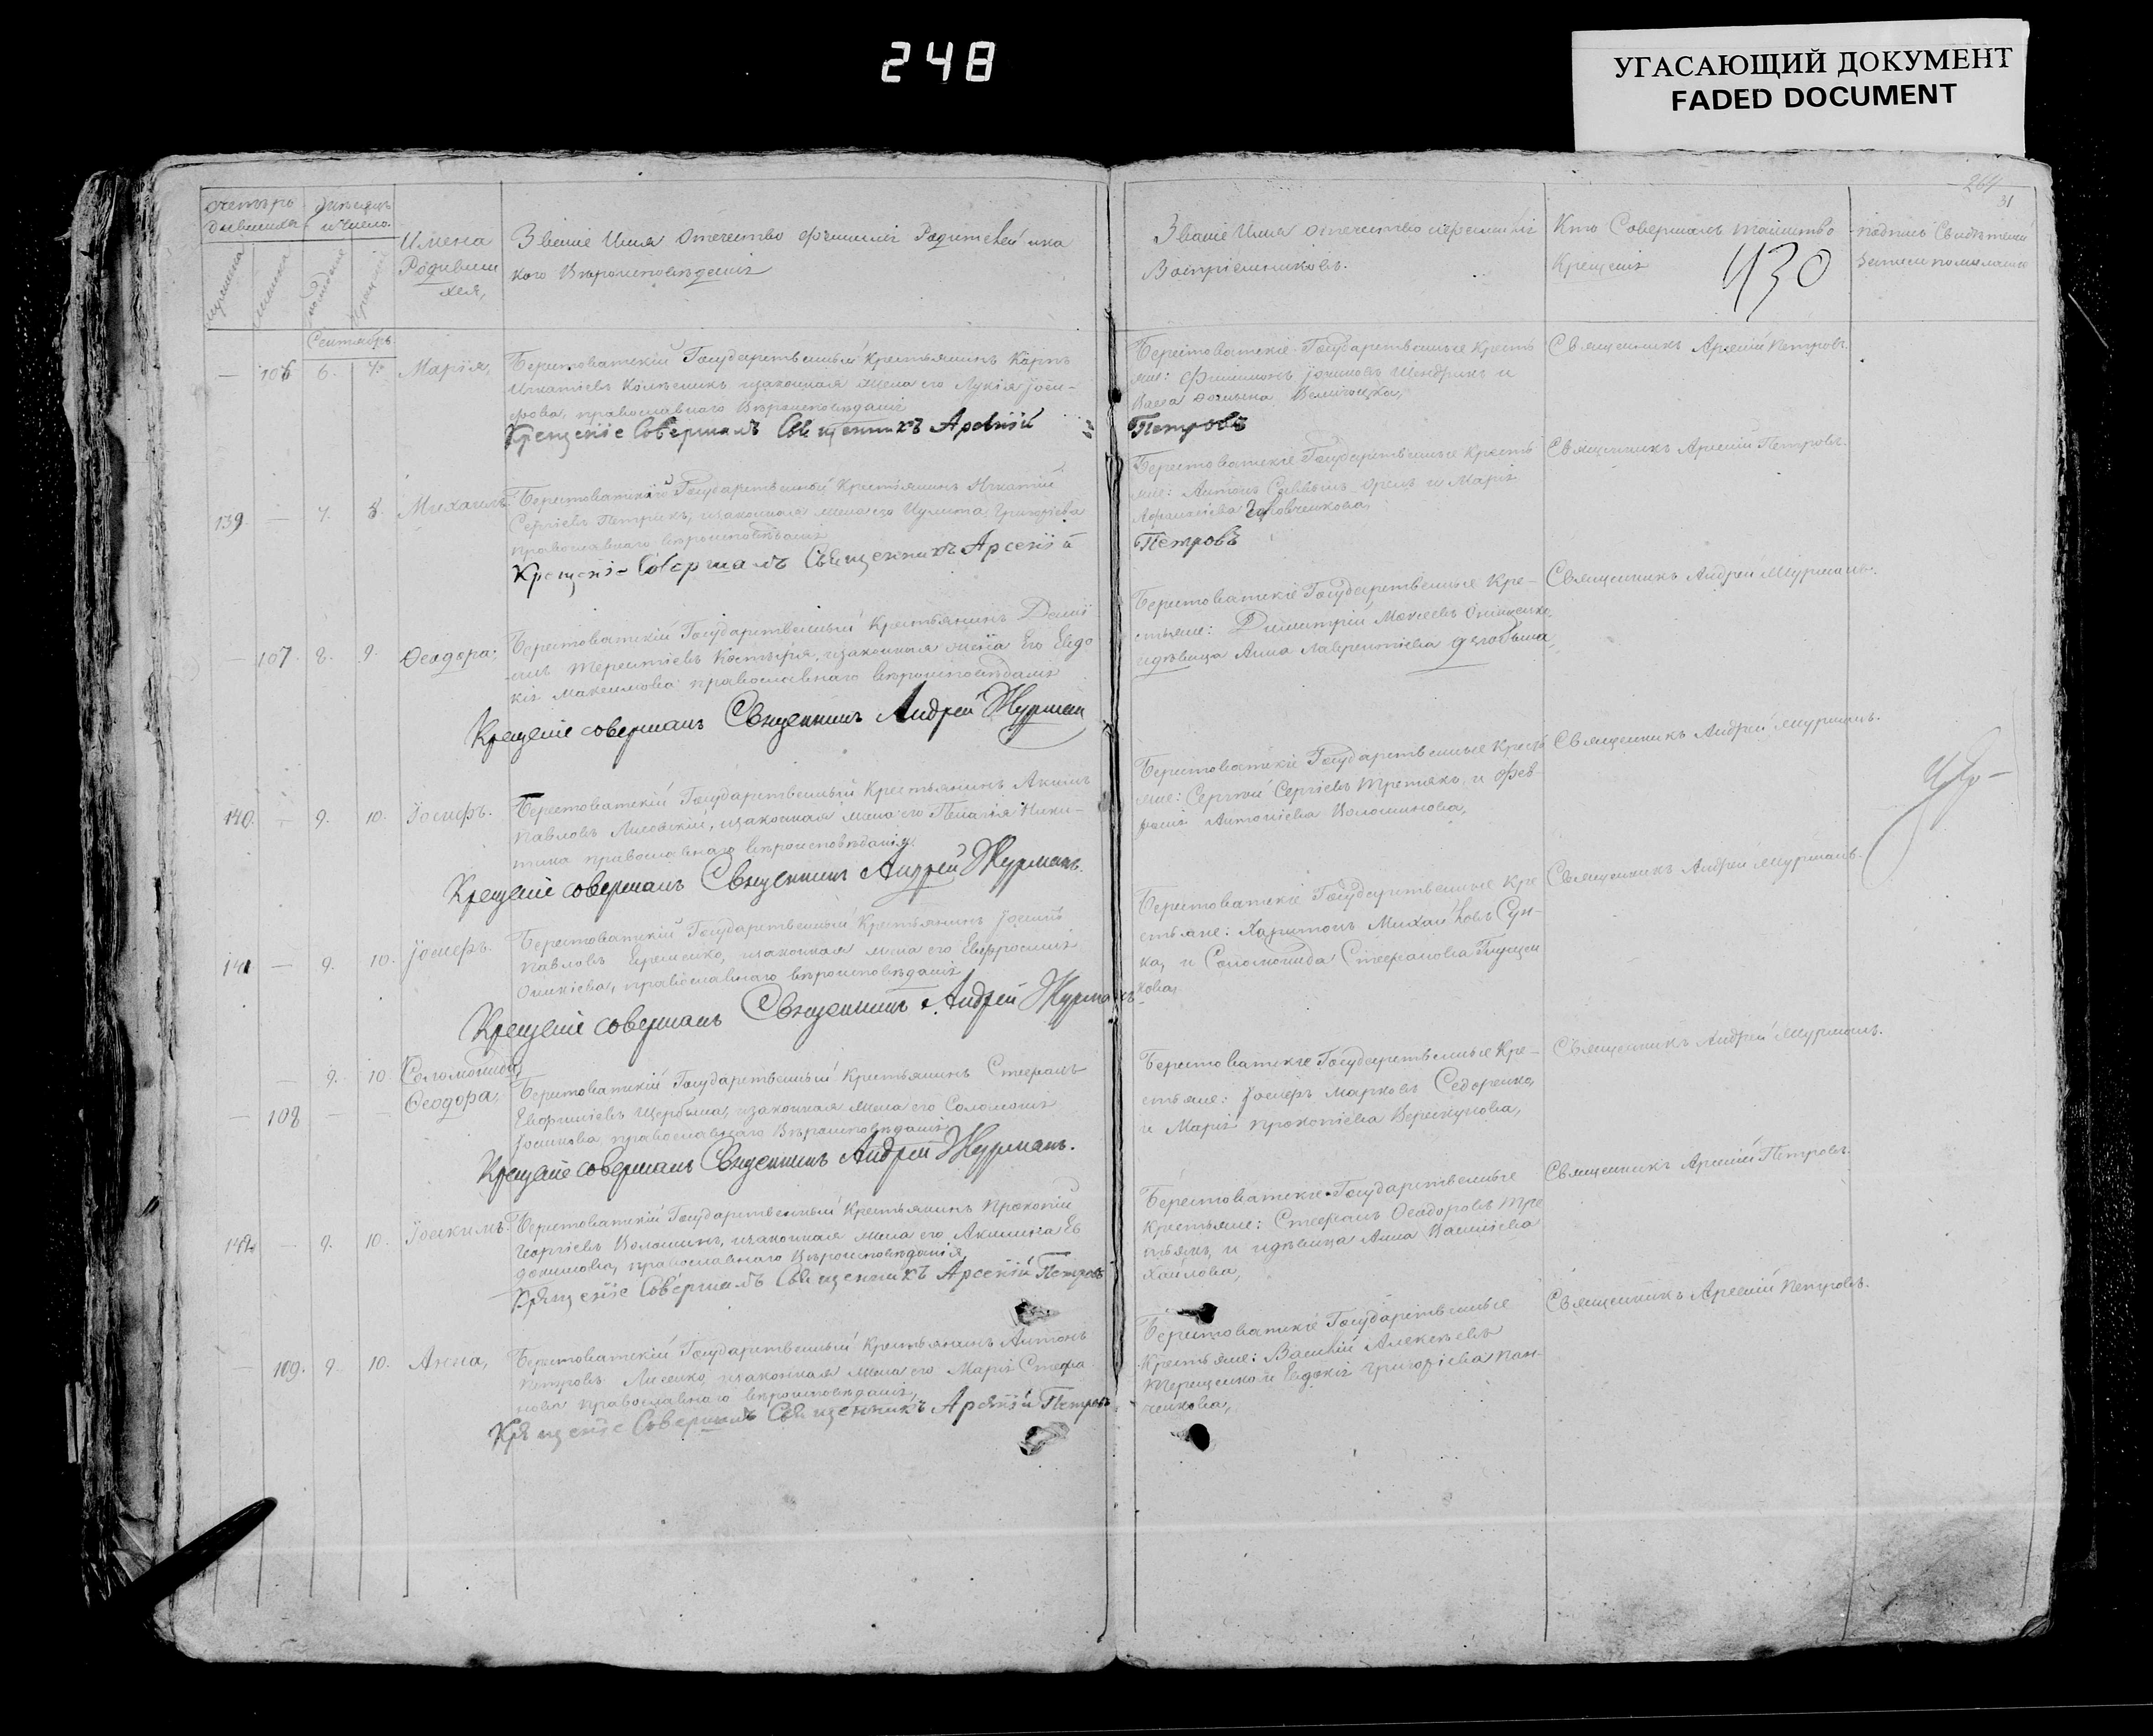 248
УГАСАЮЩИЙ ДОКУМЕНТ
FADED DOCUMENT
264
31
430
Имена
Родивши
хся,
Званіе Имя Отечество и фамиліи Родителей и ка
кого Вѣроисповѣданія
Званіе Имя Отечество и фамилія
Воспріемниковъ.
Кто Совершалъ таинство
Крещенія
Сентябрь
106 6. 7. Марія,
Берестоватскій Государственный Крестьянинъ Карпъ
Игнатіевъ законная жена его Лукія Іоси-
фова, православнаго Вѣроисповѣданія
Крещеніе Совершалъ Священникъ Арсеній
Петровъ
Берестоватскіе Государственные Кресть
яне: Филимонъ Іоакимовъ Шендрикъ и
Священникъ Арсеній Петровъ.
139. — 7. 8. Михаилъ.
Берестоватскій Государственный Крестьянинъ Игнатій
Сергіевъ Петрикъ, законная жена его Іулита Григоріева
православнаго вѣроисповѣданія
Крещеніе Совершалъ Священникъ Арсеній
Петровъ
Берестоватскіе Государственные Кресть
яне: Антонъ Саввинъ Орелъ и Марія
Афанасіева Головченкова,
Священникъ Арсеній Петровъ.
— 107. 8. 9. Ѳеодора.
Берестоватскій Государственный Крестьянинъ Дані
илъ Терентіевъ законная жена Его Евдо
кія Максимова православнаго вѣроисповѣданія
Крещеніе совершалъ Священникъ Андрей Журманъ
Берестоватскіе Государственные Кре-
стьяне: Димитрій Моисеевъ Онищенко,
и дѣвица Анна Лаврентіева
Священникъ Андрей Журманъ.
140. — 9. 10. Іосифъ.
Берестоватскій Государственный Крестьянинъ Акимъ
Павловъ Лисовскій, законная жена его Пелагія Ники-
тина православнаго вѣроисповѣданія
Крещеніе совершалъ Священникъ Андрей Журманъ.
Берестоватскіе Государственные Кресть
яне: Сергій Сергіевъ Третякъ, и Фев-
ронія Антоніева Волошинова,
Священникъ Андрей Журманъ.
141. — 9. 10. Іосифъ.
Берестоватскій Государственный Крестьянинъ Іосифъ
Павловъ Еременко, законная жена его Евфросинія
православнаго вѣроисповѣданія
Крещеніе совершалъ Священникъ Андрей Журманъ
Берестоватскіе Государственные Кре
стьяне: Харитонъ Михайловъ Сун-
ка, и Соломонида Стефанова
Священникъ Андрей Журманъ.
— 9. 10 Соломонида,
— 108 — — Ѳеодора,
Берестоватскій Государственный Крестьянинъ Стефанъ
Евфиміевъ Щербина, законная жена его Соломонія
православнаго Вѣроисповѣданія
Крещеніе совершалъ Священникъ Андрей Журманъ.
Берестоватскіе Государственные Кре-
стьяне: Іосифъ Марковъ Сидоренко,
и Марія Прокопіева
Священникъ Андрей Журманъ.
142. — 9. 10. Іоакимъ.
Берестоватскій Государственный Крестьянинъ Прокопій
Георгіевъ Волошинъ, законная жена его Акилина Ев
докимова, православнаго Вѣроисповѣданія
Крещеніе Совершалъ Священникъ Арсеній Петровъ
Берестоватскіе Государственные
Крестьяне: Стефанъ Ѳеодоровъ Тре
тьякъ, и дѣвица Анна Василіева
Хайлова,
Священникъ Арсеній Петровъ.
— 109. 9. 10. Анна,
Берестоватскій Государственный Крестьянинъ Антонъ
Петровъ Лисенко, законная жена его Марія Стефа
нова православнаго вѣроисповѣданія,
Крещеніе Совершалъ Священникъ Арсеній Петровъ
Берестоватскіе Государственные
Крестьяне: Василій Алексѣевъ
Терещенко и Евдокія Григоріева Пан-
ченкова,
Священникъ Арсеній Петровъ.